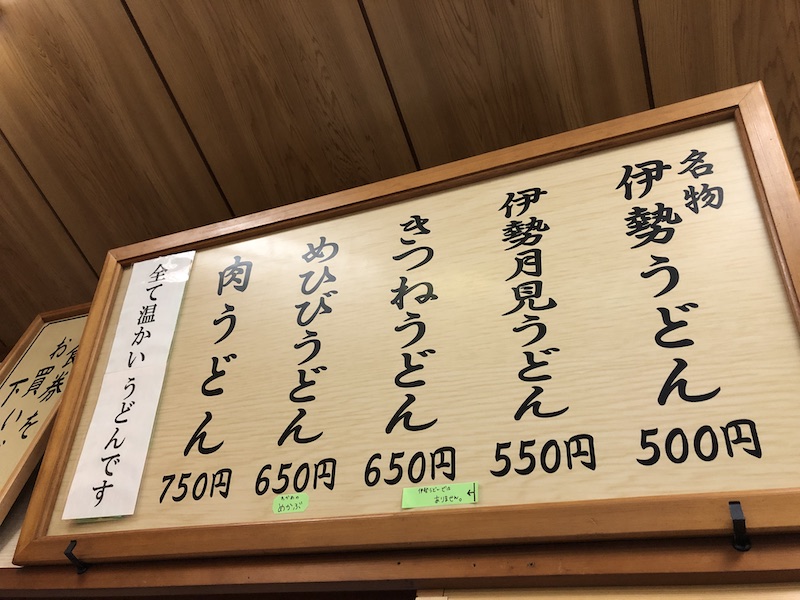 名物
伊勢うどん
500円
伊勢月見うどん
550円
きつねうどん
650円
伊勢うどんでは
ありません。
←
めひびうどん
650円
めかぶ
肉うどん
750円
全て温かいうどんです
食券を
お買
下い